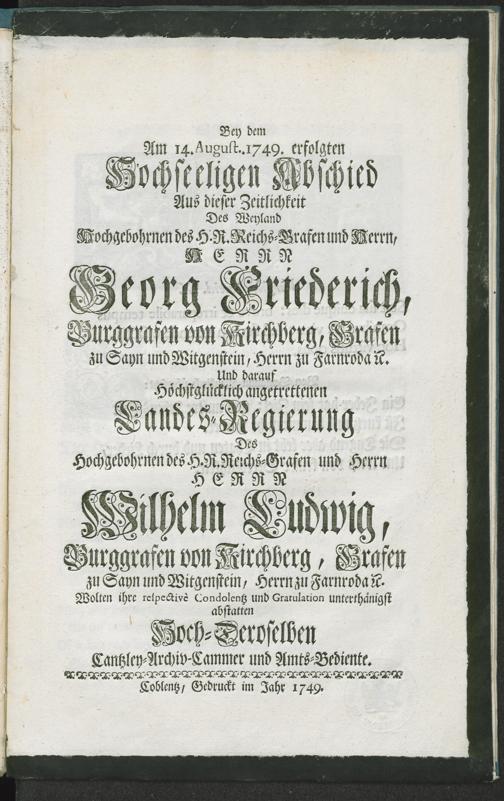 Bey dem
Am 14. August. 1749. erfolgten
Hochseeligen Abschied
Aus dieser Zeitlichkeit
Des Weyland
Hochgebohrnen des H. R. Reichs-Grafen und Herrn,
HERRN
Georg Friederich,
Burggrafen von Kirchberg, Grafen
zu Sayn und Witgenstein, Herrn zu Farnroda ꝛc.
Und darauf
Höchstglücklich angetrettenen
Landes-Regierung
Des
Hochgebohrnen des H. R. Reichs-Grafen und Herrn
HERRN
Wilhelm Ludwig,
Burggrafen von Kirchberg, Grafen
zu Sayn und Witgenstein, Herrn zu Farnroda ꝛc.
Wolten ihre respectivè Condolentz und Gratulation unterthänigst
abstatten
Hoch-Deroselben
Cantzley-Archiv-Cammer und Amts-Bediente.
Coblentz, Gedruckt im Jahr 1749.